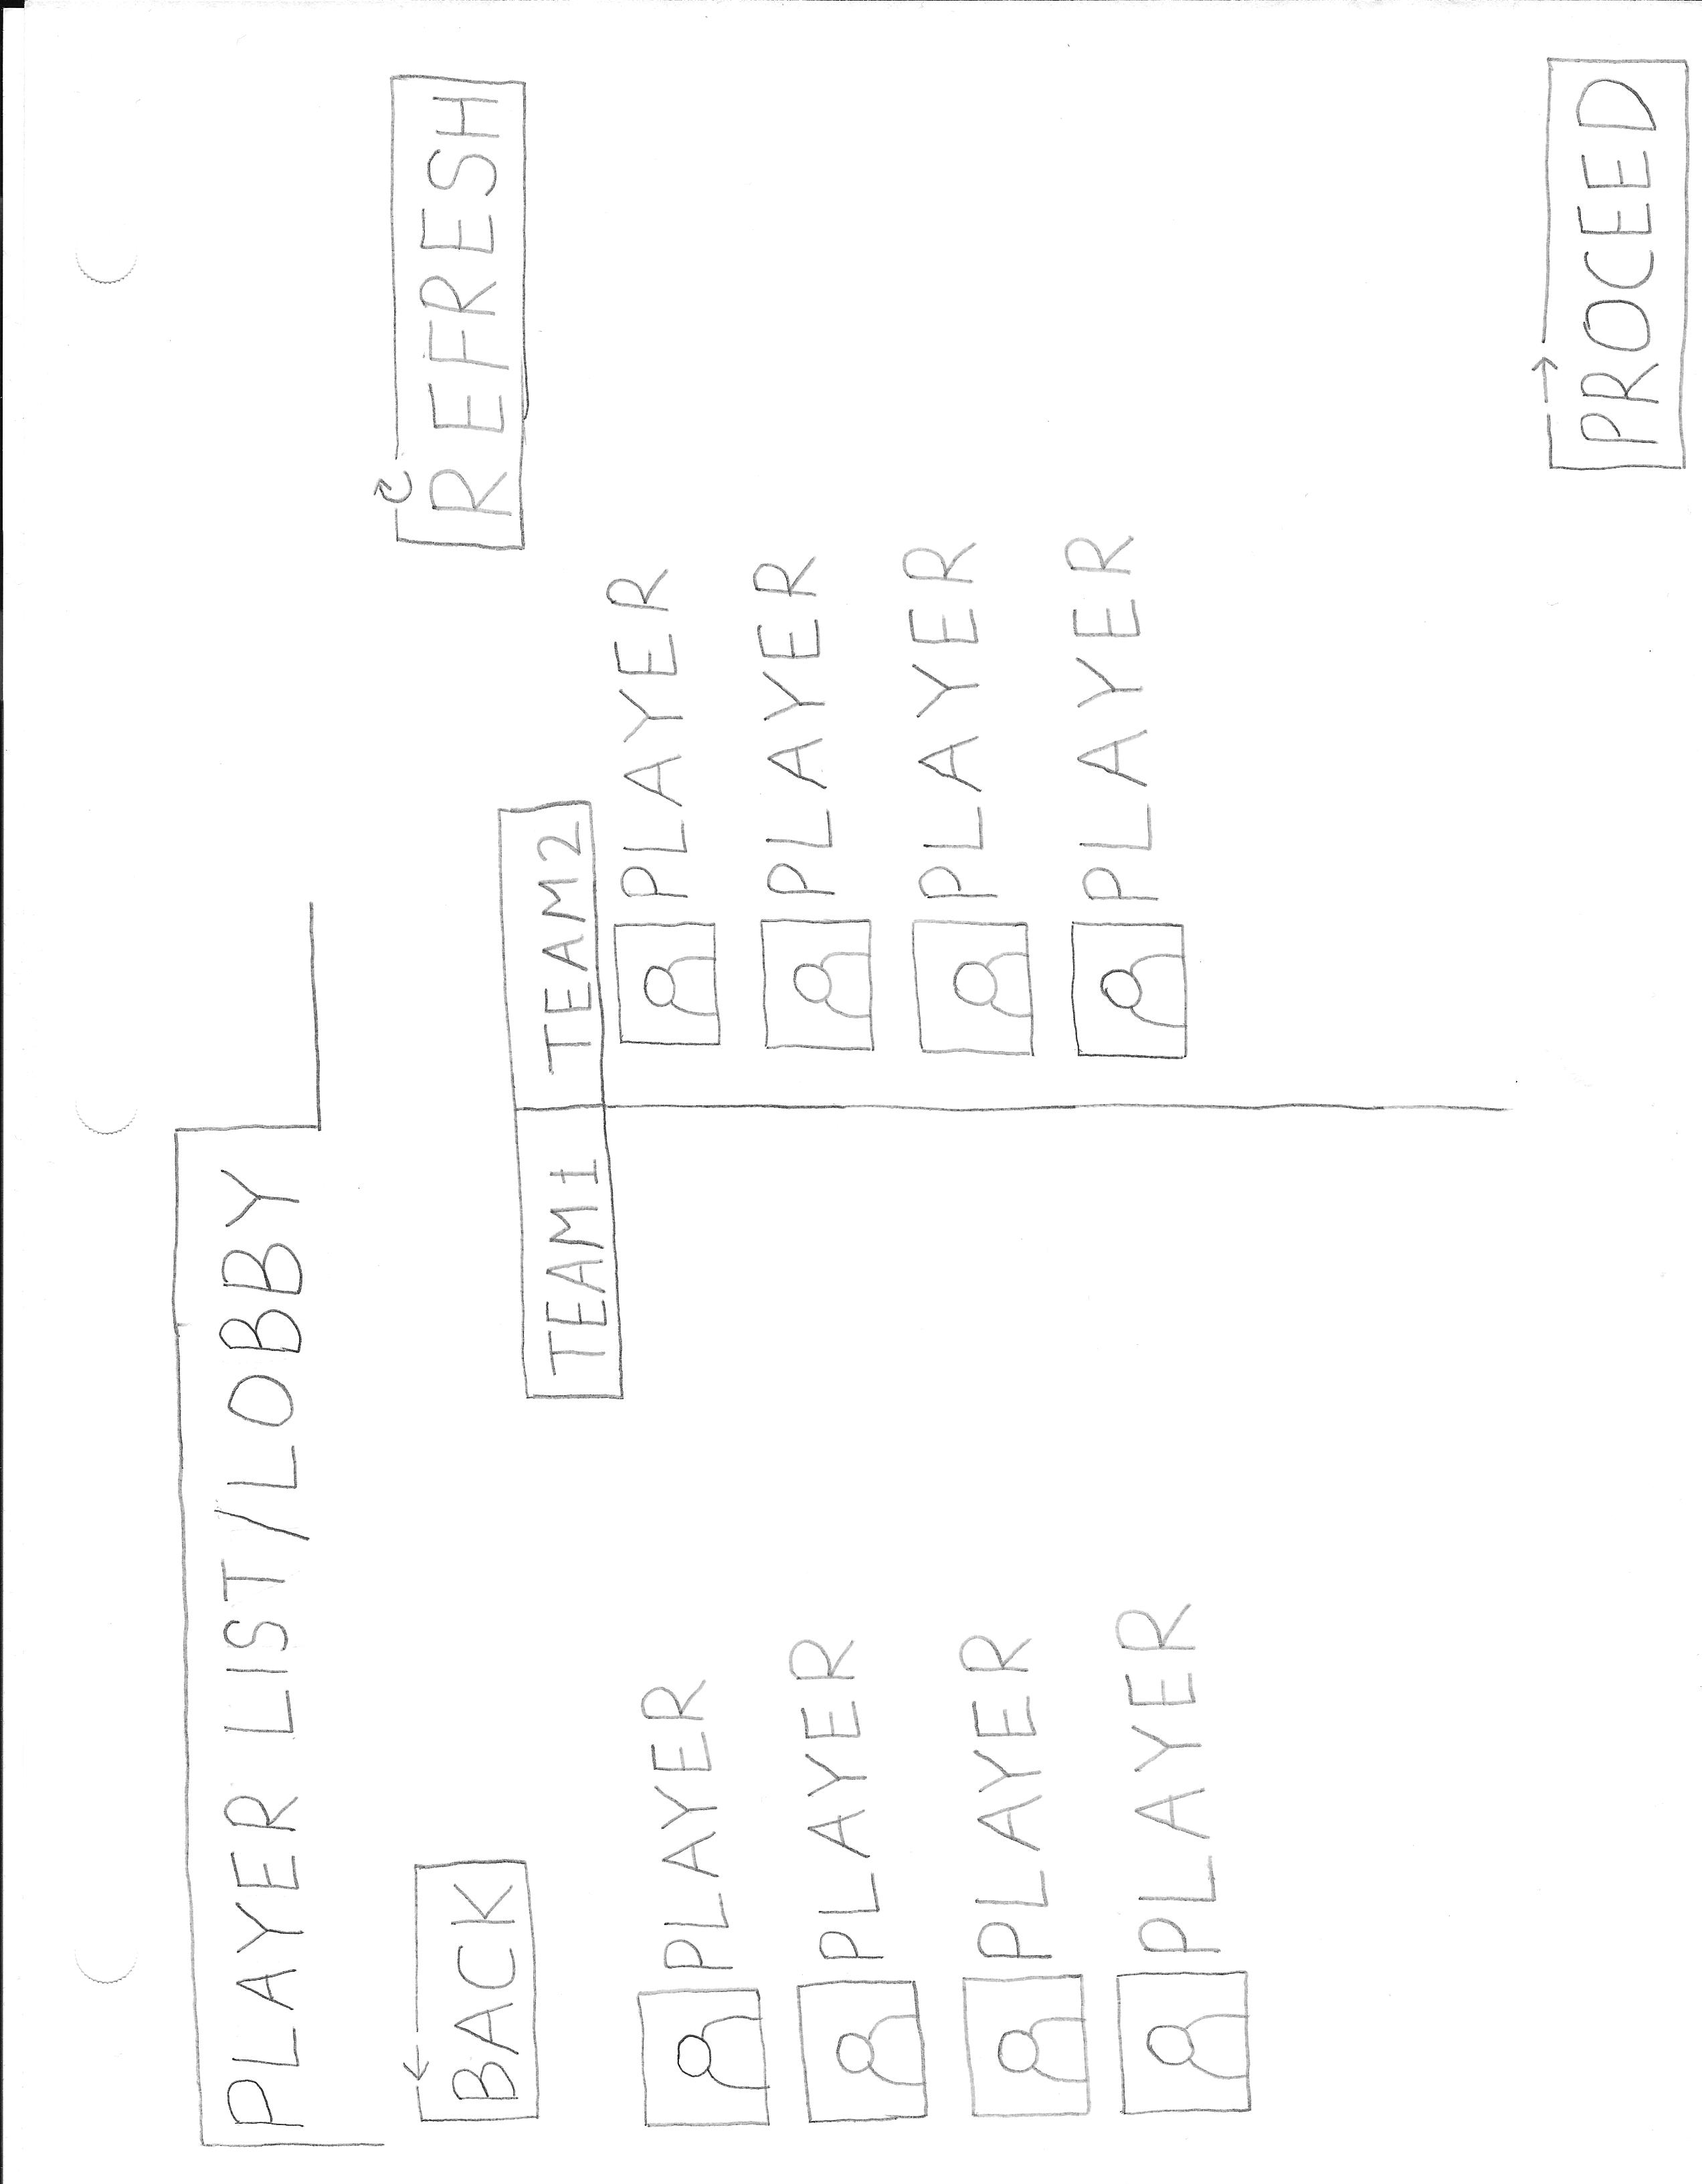 PLAYER LIST/LOBBY
BACK
REFRESH
TEAM1 TEAM2
PLAYER
PLAYER
PLAYER
PLAYER
PLAYER
PLAYER
PLAYER
PLAYER
PROCEED